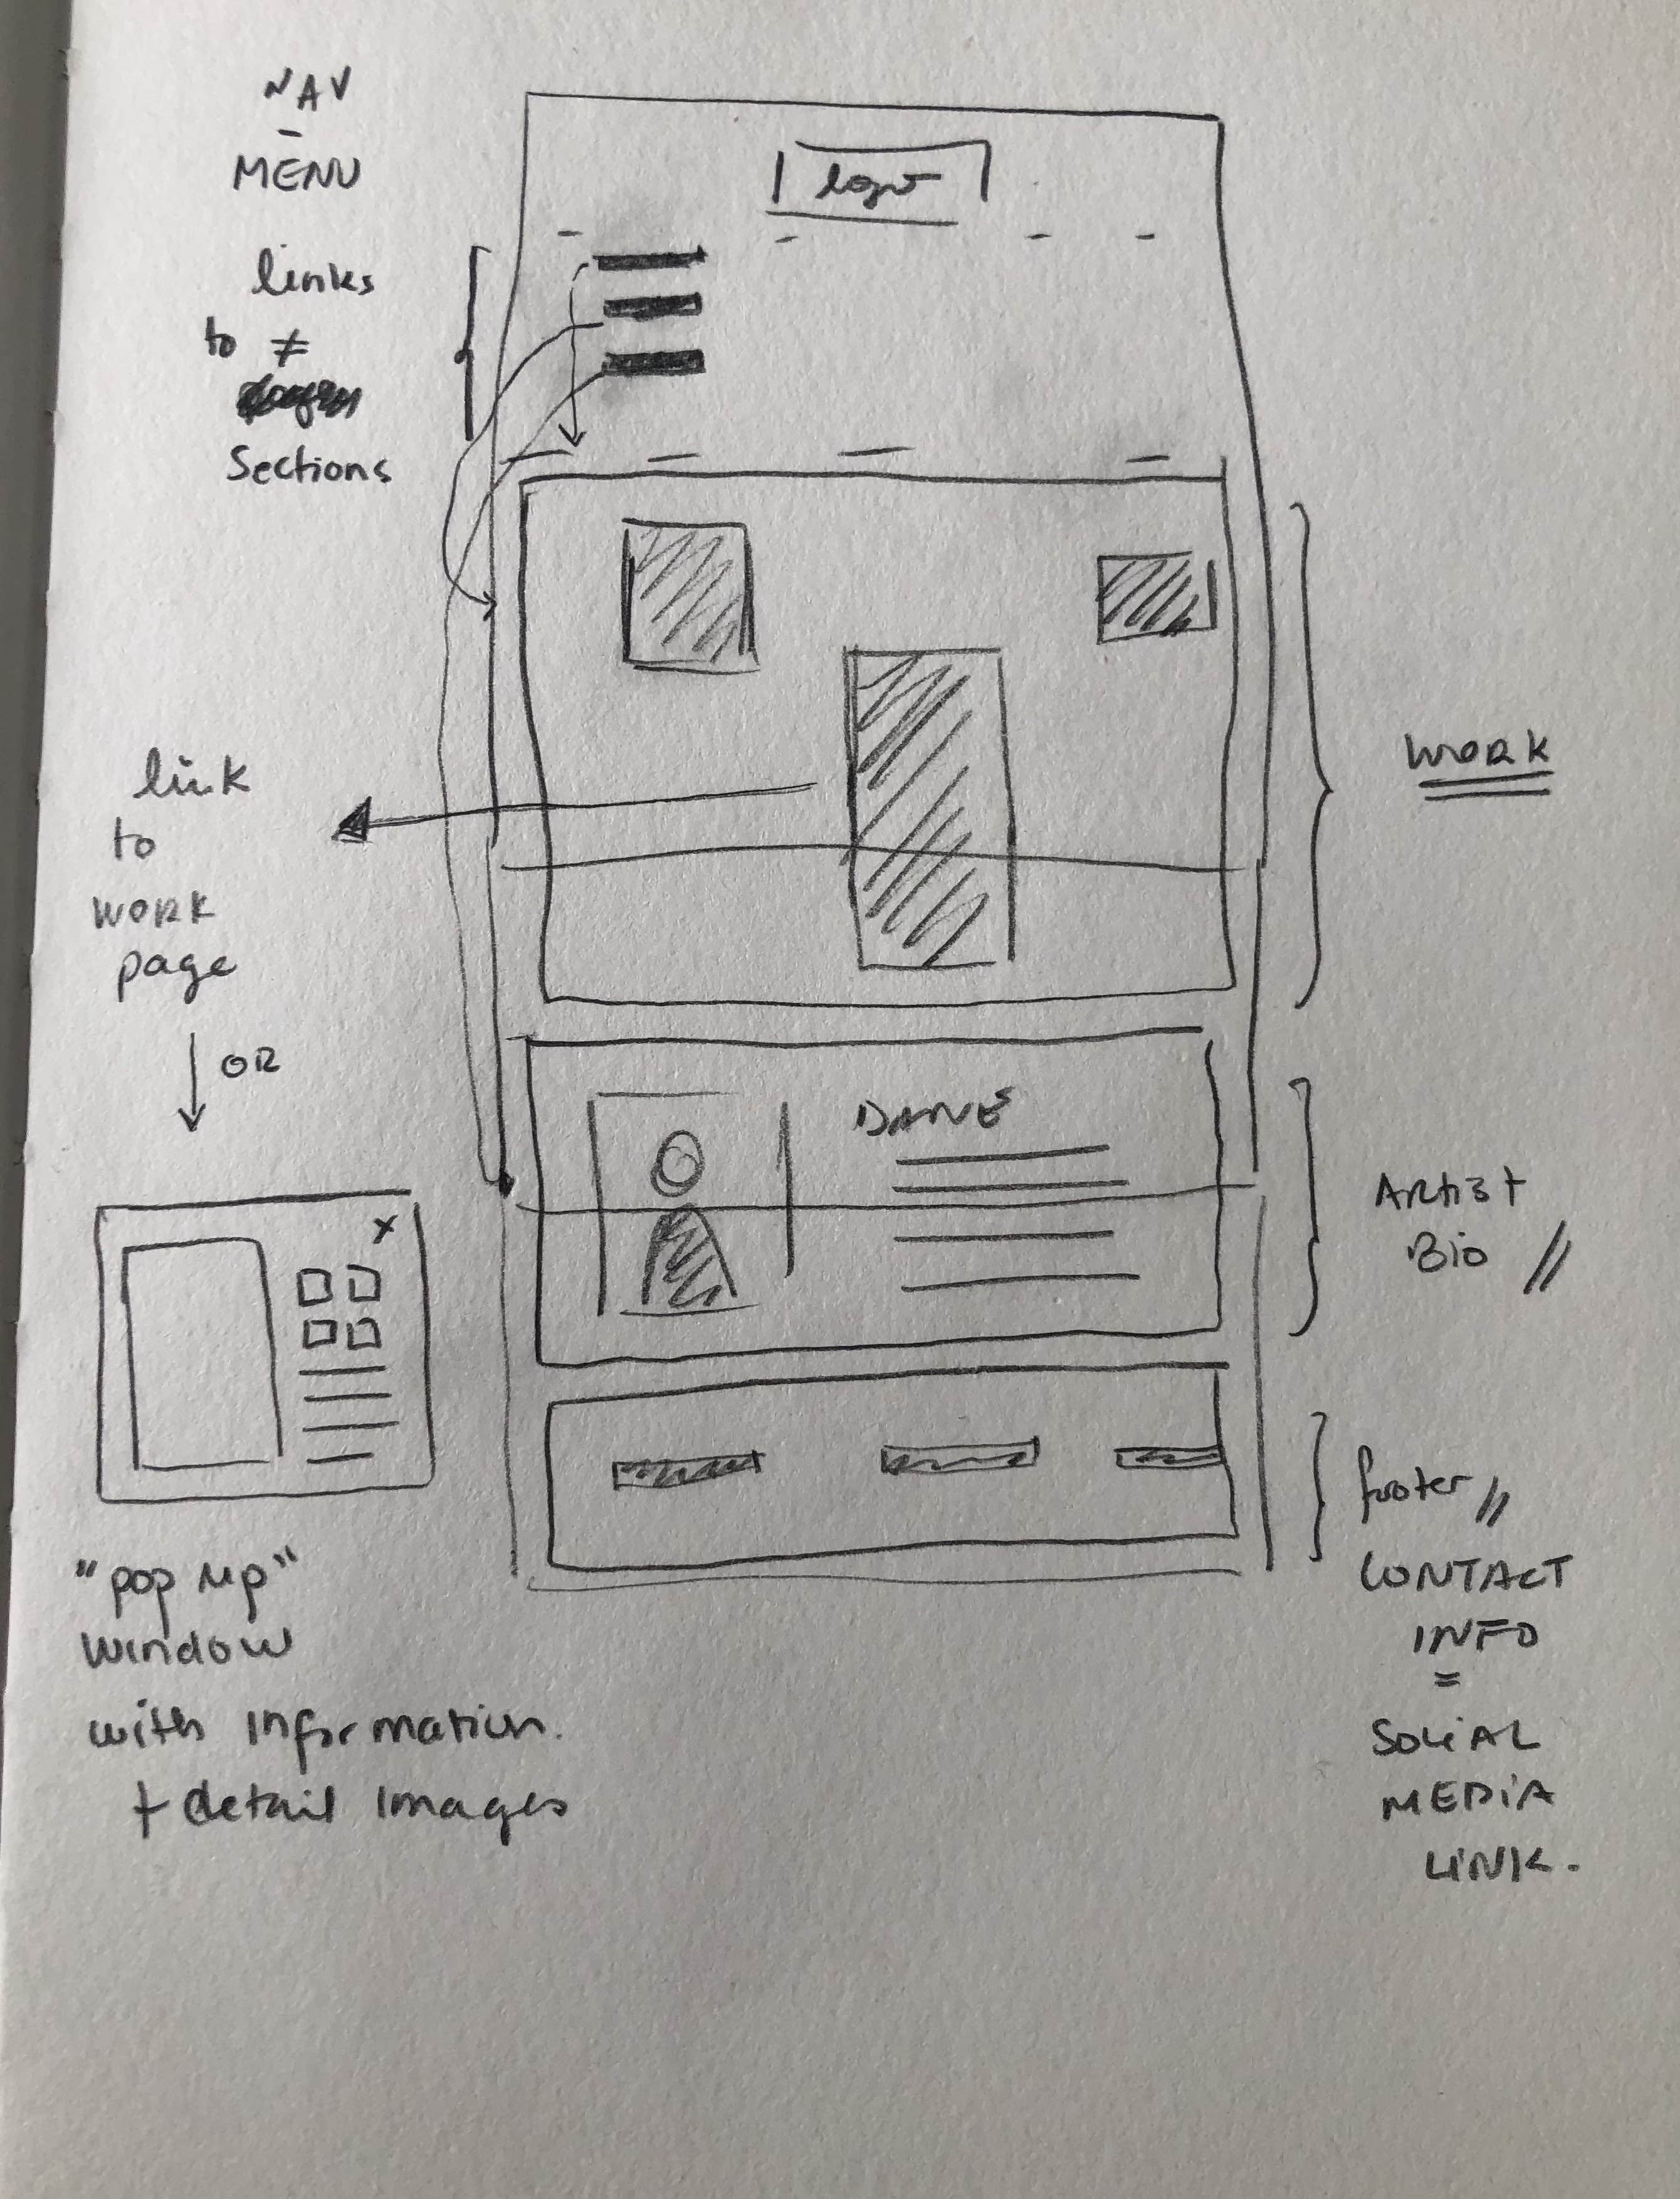 NAV
-
MENU
links
to ≠
Sections
logo
link
to
WORK
page
OR
"pop up"
window
with information.
+ detail images
WORK
DANE
Artist
Bio //
footer //
CONTACT
INFO
=
SOCIAL
MEDIA
LINK.